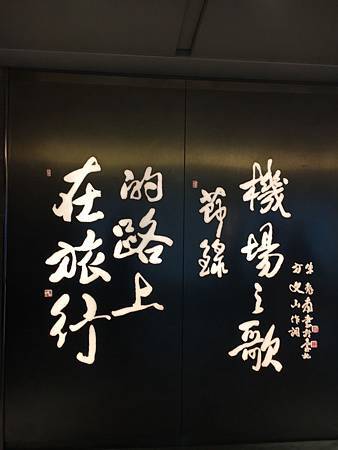 在旅行
的路上
節錄
機場之歌
方文山作詞